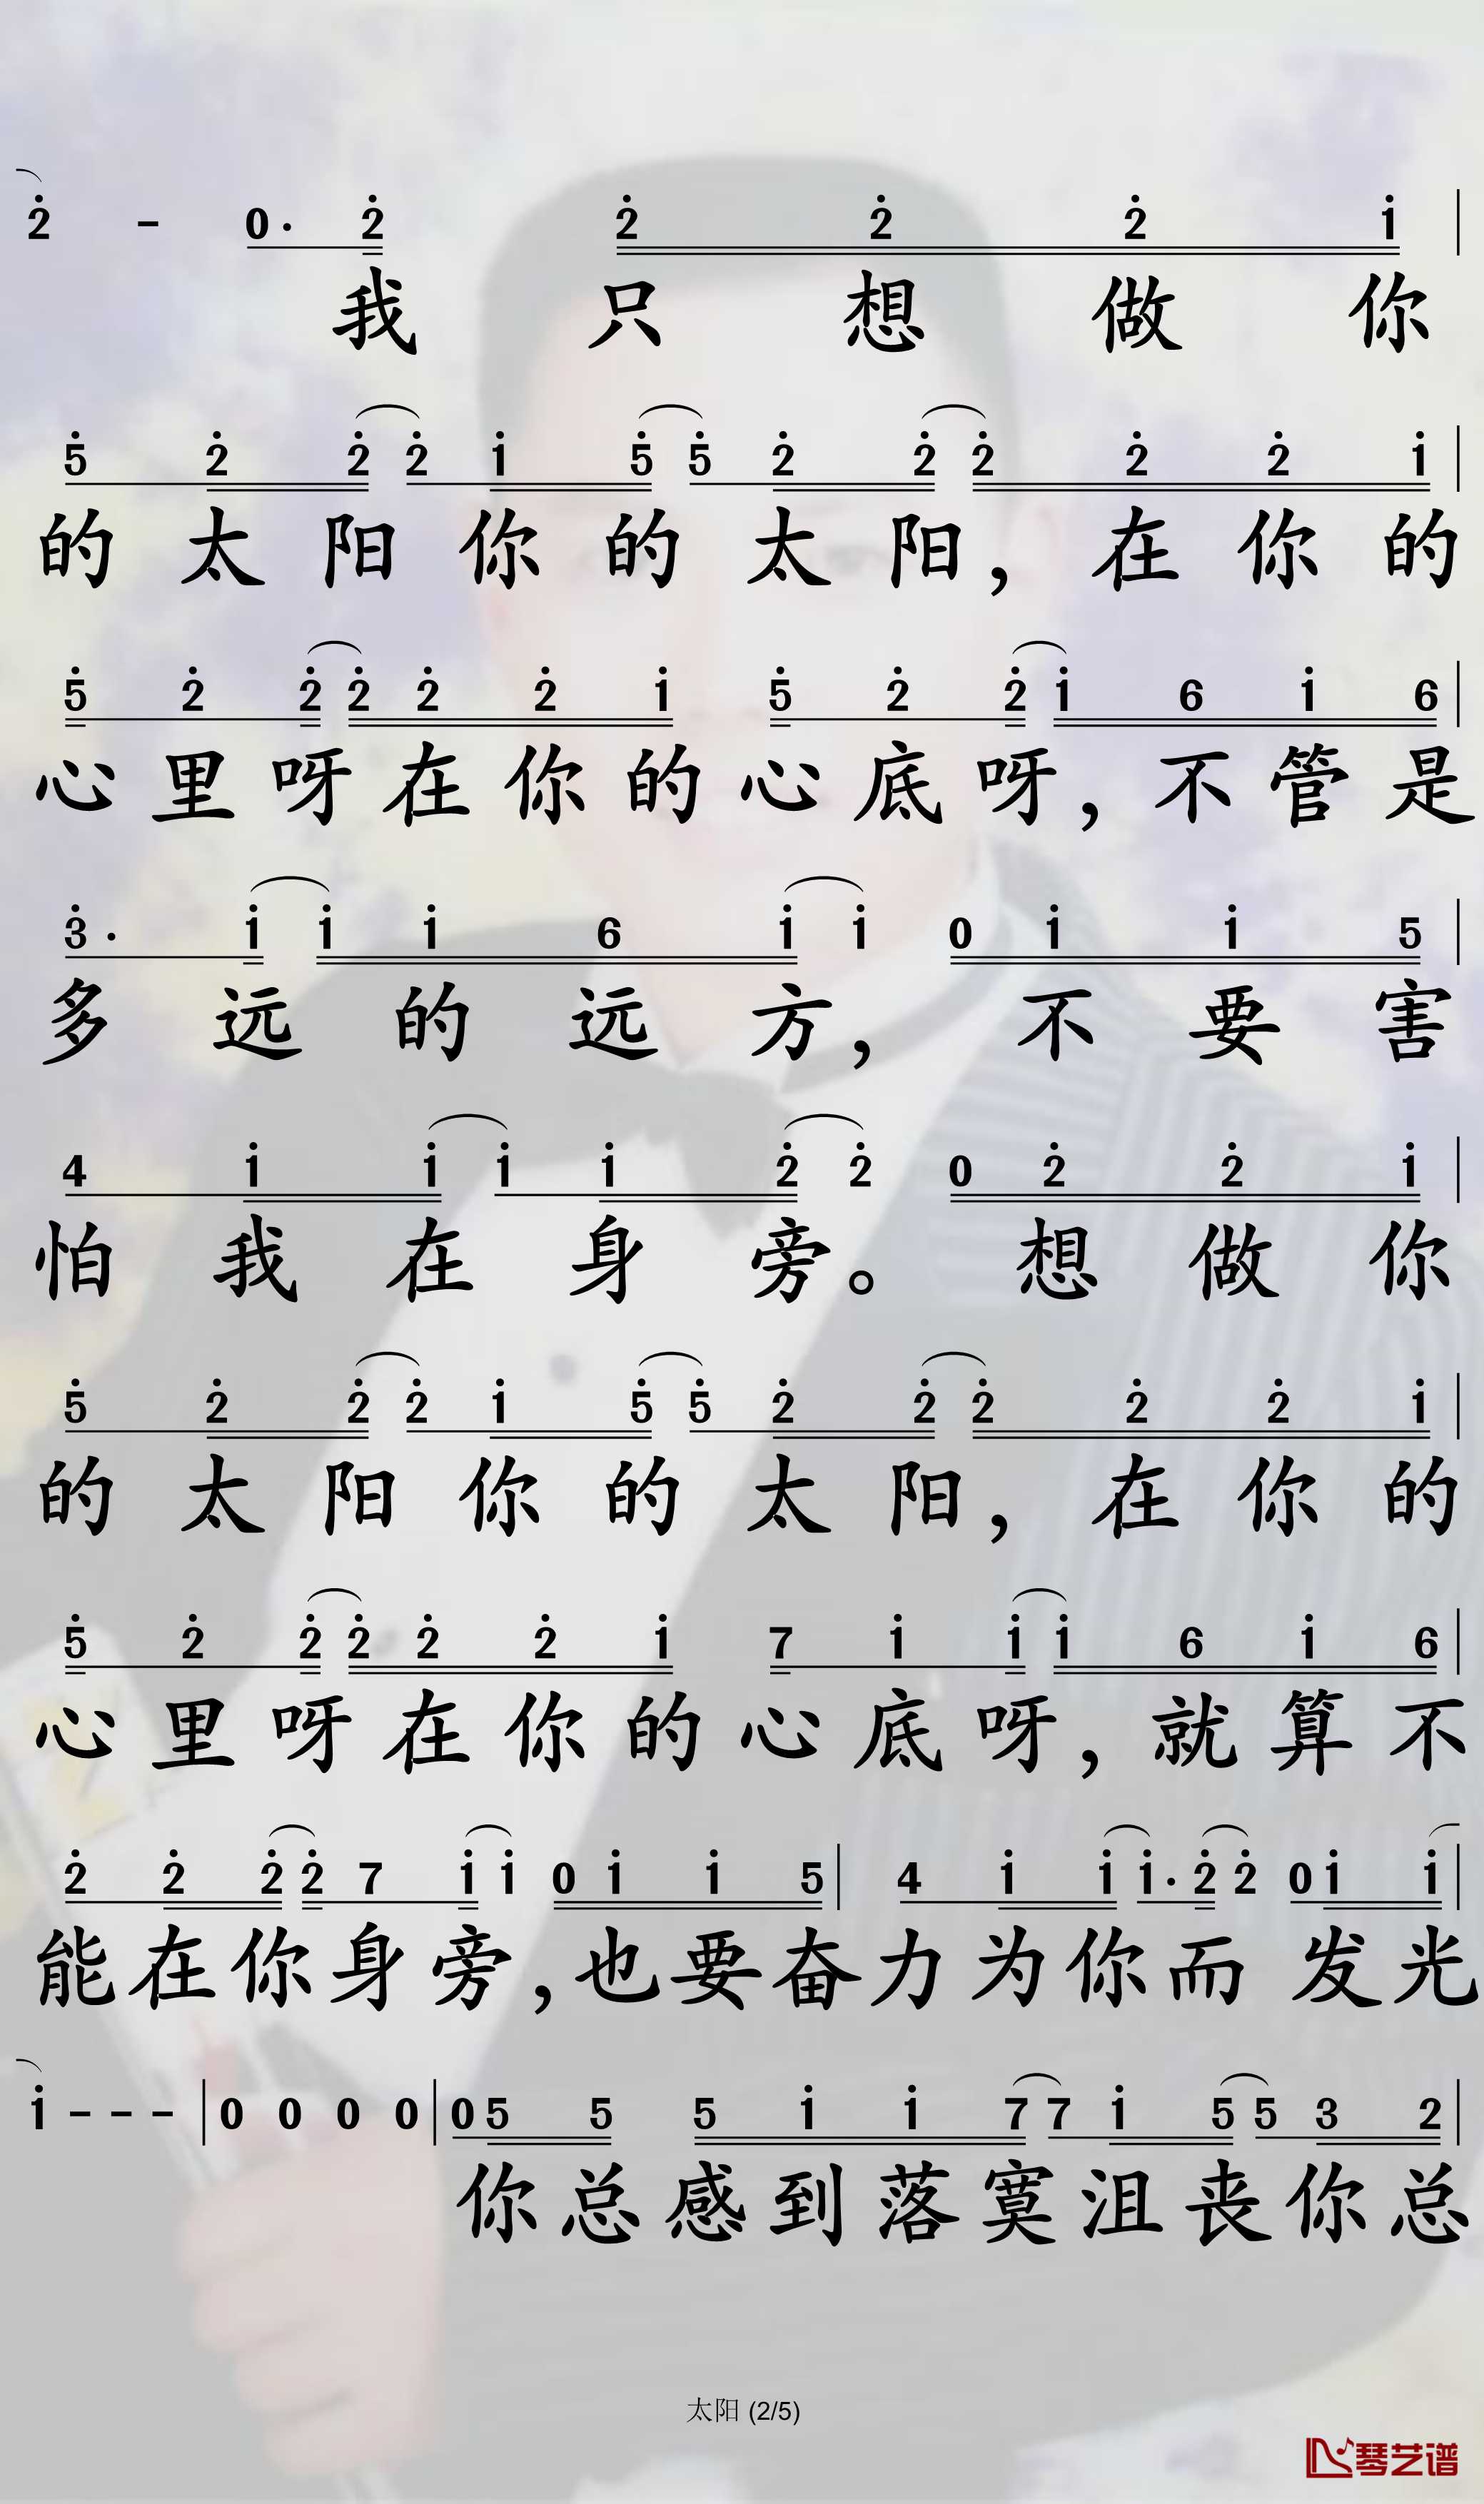 2̇ - 0· 2̇ 2̇ 2̇ 2̇ 1̇ |
我 只 想 做 你
5̇ 2̇ 2̇ 2̇ 1̇ 5̇ 5̇ 2̇ 2̇ 2̇ 2̇ 2̇ 1̇ |
的 太 阳 你 的 太 阳， 在 你 的
5̇ 2̇ 2̇ 2̇ 2̇ 2̇ 1̇ 5̇ 2̇ 2̇ 1̇ 6 1̇ 6 |
心 里 呀 在 你 的 心 底 呀， 不 管 是
3̇· 1̇ 1̇ 1̇ 6 1̇ 1̇ 0 1̇ 1̇ 5 |
多 远 的 远 方， 不 要 害
4 1̇ 1̇ 1̇ 1̇ 2̇ 2̇ 0 2̇ 2̇ 1̇ |
怕 我 在 身 旁。 想 做 你
5̇ 2̇ 2̇ 2̇ 1̇ 5̇ 5̇ 2̇ 2̇ 2̇ 2̇ 2̇ 1̇ |
的 太 阳 你 的 太 阳， 在 你 的
5̇ 2̇ 2̇ 2̇ 2̇ 2̇ 1̇ 7 1̇ 1̇ 1̇ 6 1̇ 6 |
心 里 呀 在 你 的 心 底 呀， 就 算 不
2̇ 2̇ 2̇ 2̇ 7 1̇ 1̇ 0 1̇ 1̇ 5 | 4 1̇ 1̇ 1̇· 2̇ 2̇ 0 1̇ 1̇ |
能 在 你 身 旁， 也 要 奋 力 为 你 而 发 光
1̇ - - - | 0 0 0 0 | 0 5 5 5 1̇ 1̇ 7 7 1̇ 5 5 3 2 |
你 总 感 到 落 寞 沮 丧 你 总
太阳 (2/5)
琴艺谱